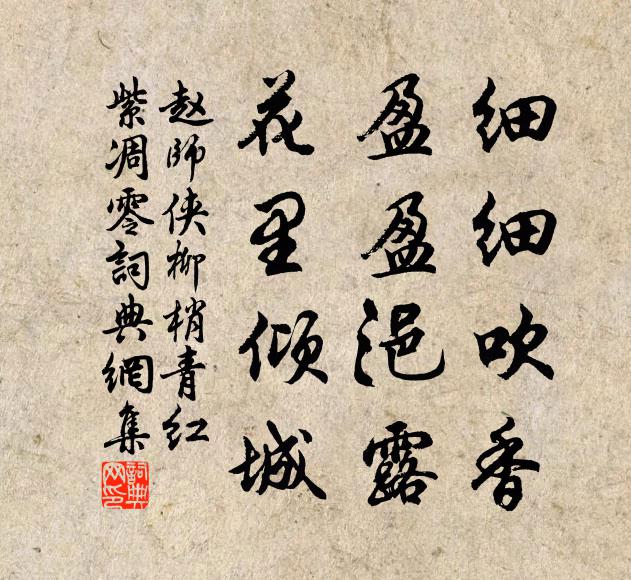 细细吹香
盈盈浥露
花里倾城
赵师侠柳梢青红
紫凋零詞典網集
詞典网印